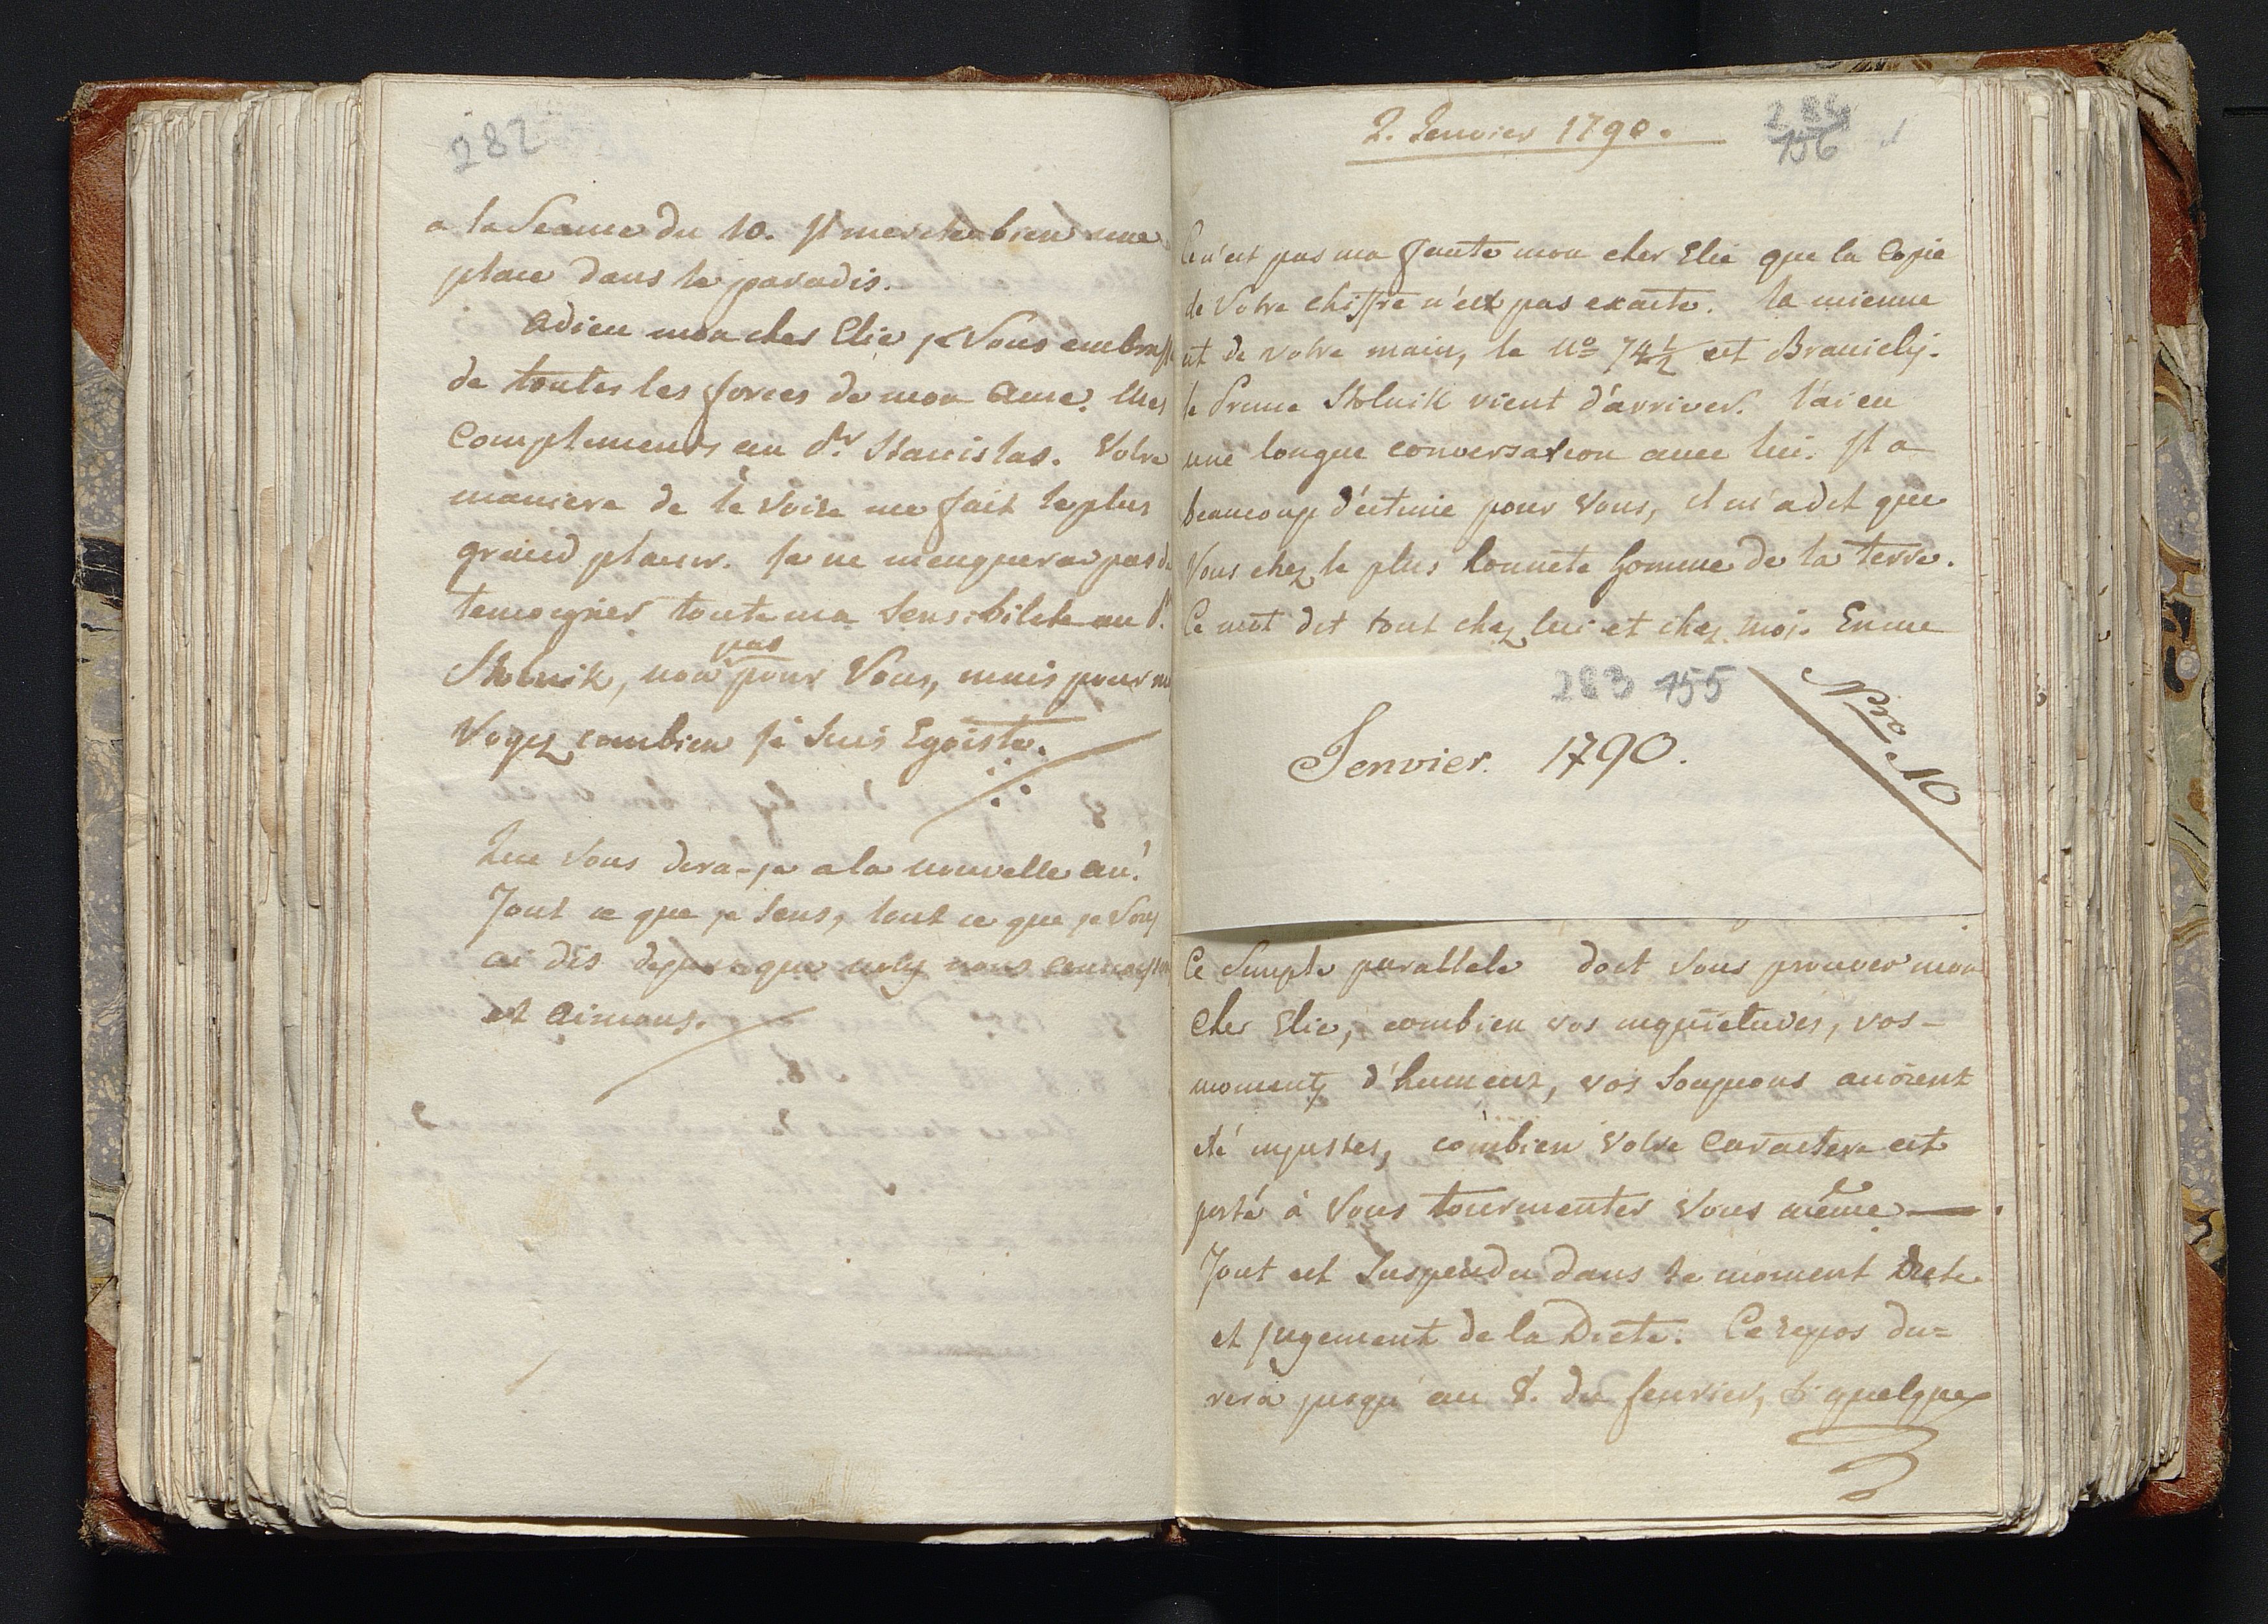 282
a la Seance du 10. Il merite bien une
place dans le paradis.
Adieu mon cher Elie je Vous embrasse
de toutes les forces de mon ame. Mes
Complements au Pr. Stanislas. Votre
maniere de le voire me fait le plus
grand plaisir. Je ne menquerai pas de
temoigner toute ma Sensibilite au P.
Stolnik, non pas pour Vous, mais pour
Voyez combien je Suis Egoiste.
Que Vous dira-je a la nouvelle an!
Tout ce que je Sens, tout ce que je Vous
ai dis depuis que nous nous connoissons
et aimons.
2. Jenvier 1790.
284
156
Ce n'est pas ma faute mon cher Elie que la Copie
de Votre chiffre n'est pas exacte. la mienne
est de votre main, le No 74 1/2 est Branicky.
le Prince Stolnik vient d'arriver. J'ai eu
une longue conversation avec lui. Il a
beaucoup d'estime pour Vous, il m'a dit que
Vous etez le plus honnete homme de la terre.
Ce mot dit tout chez lui et chez moi. En me
283 155
Nro 10
Jenvier. 1790.
Ce Simple parallele doit Vous prouver mon
cher Elie, combien vos inquietudes, vos
moments d'humeur, vos Soupçons avoient
eté injustes, combien Votre Caractere est
porté à Vous tourmenter Vous même.
Tout est Suspendu dans le moment Diete
et jugement de la Diete. Ce repos du=
rera jusqu'au 8. du fevrier, Si quelque